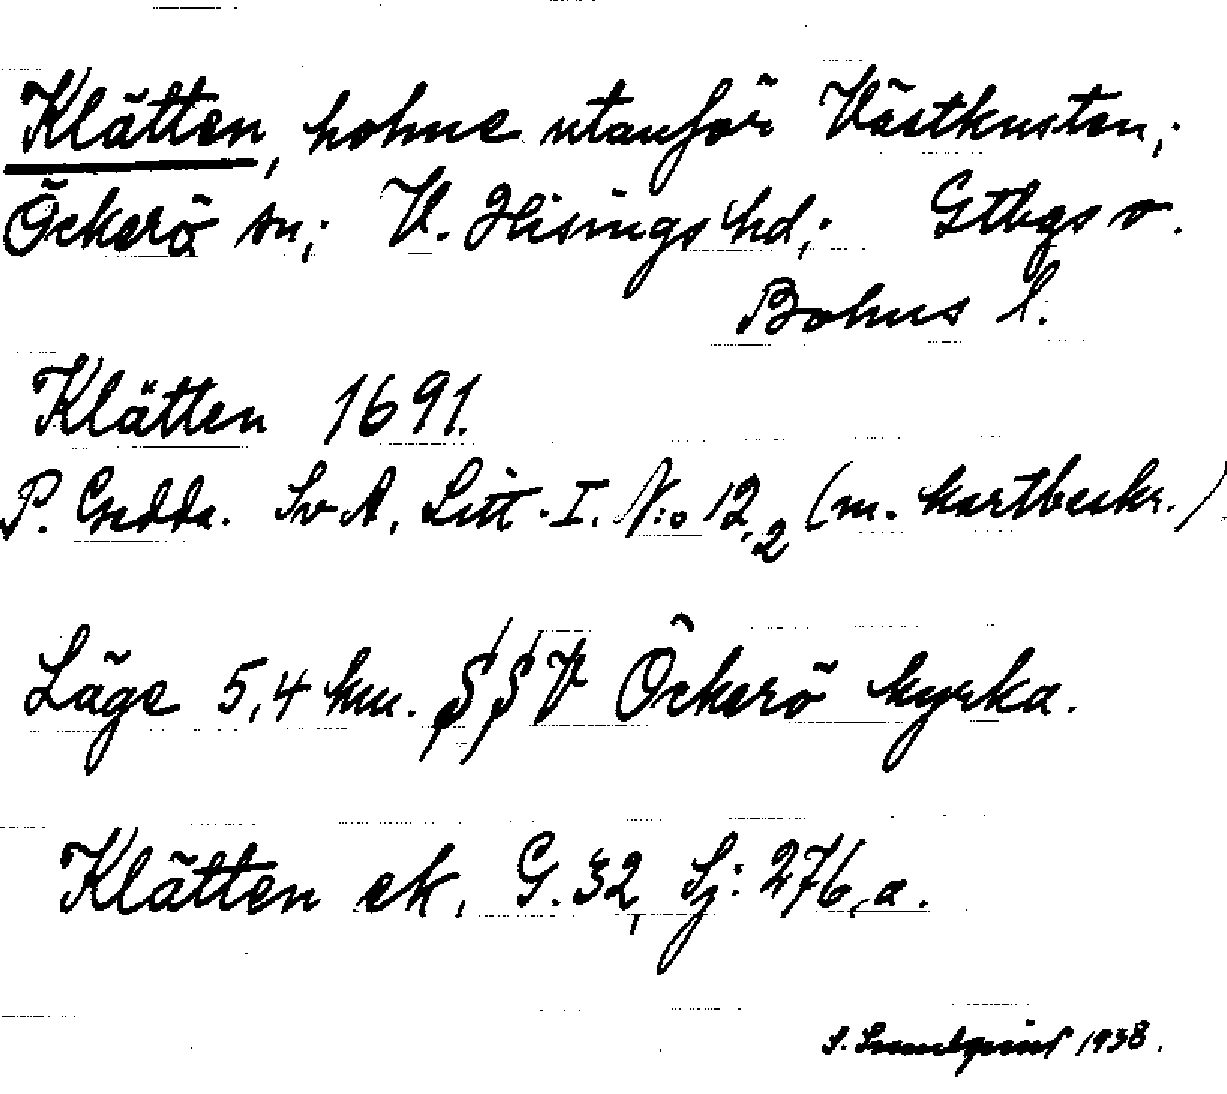 Klätten, holme utanför Västkusten,;
Öckerö sn; V. Hisings hd; Gtbgs o.
Bohus l.
Klätten 1691.
P. Gedda. Sv A. Litt. I. N:o 12,2 (m. kartbeskr.)
Läge 5,4 km. SSV Öckerö kyrka.
Klätten ek. G. 32, Sj: 276,a.
S. 1938.